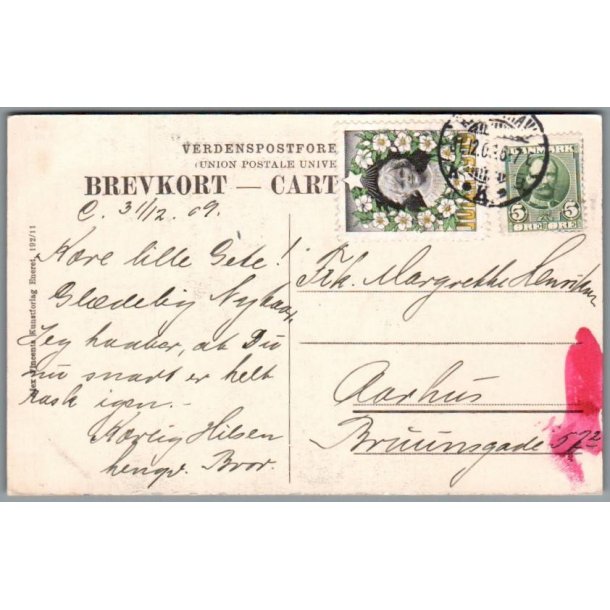 VERDENSPOSTFORE
(UNION POSTALE UNIVE
BREVKORT — CART
JUL
DANMARK
5 5
ØRE ØRE
K.
C. 31/12. 09.
Kære lille Gete!
Glædelig Nytaar,
Jeg haaber, at Du
nu snart er helt
rask igen.—
Kærlig Hilsen
hengv. Bror.
Frk. Margrethe Henriksen
Aarhus
Bruunsgade 57²
Alex Vincents Kunstforlag Eneret. 192/11